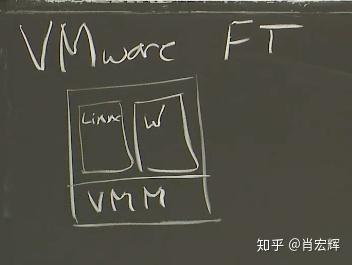 VMware FT
Linux W
VMM
知乎 @肖宏辉